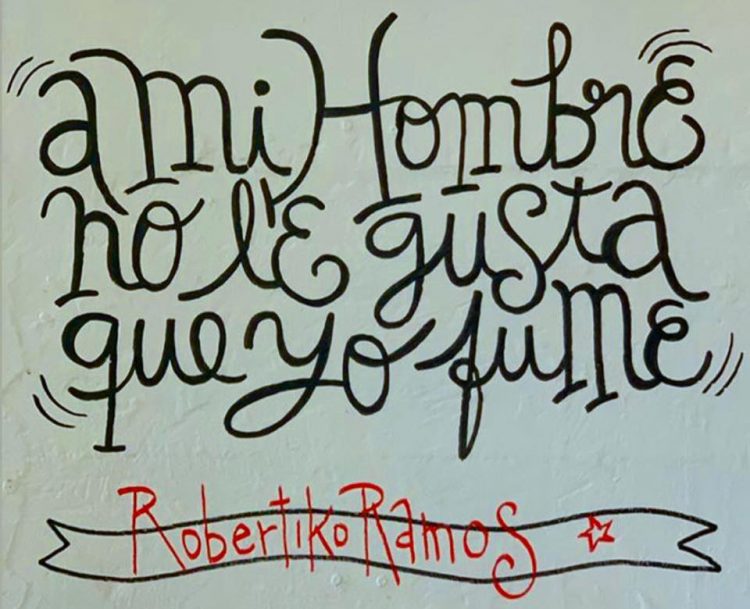 a mi Hombre
no le gusta
que yo fume
Robertiko Ramos